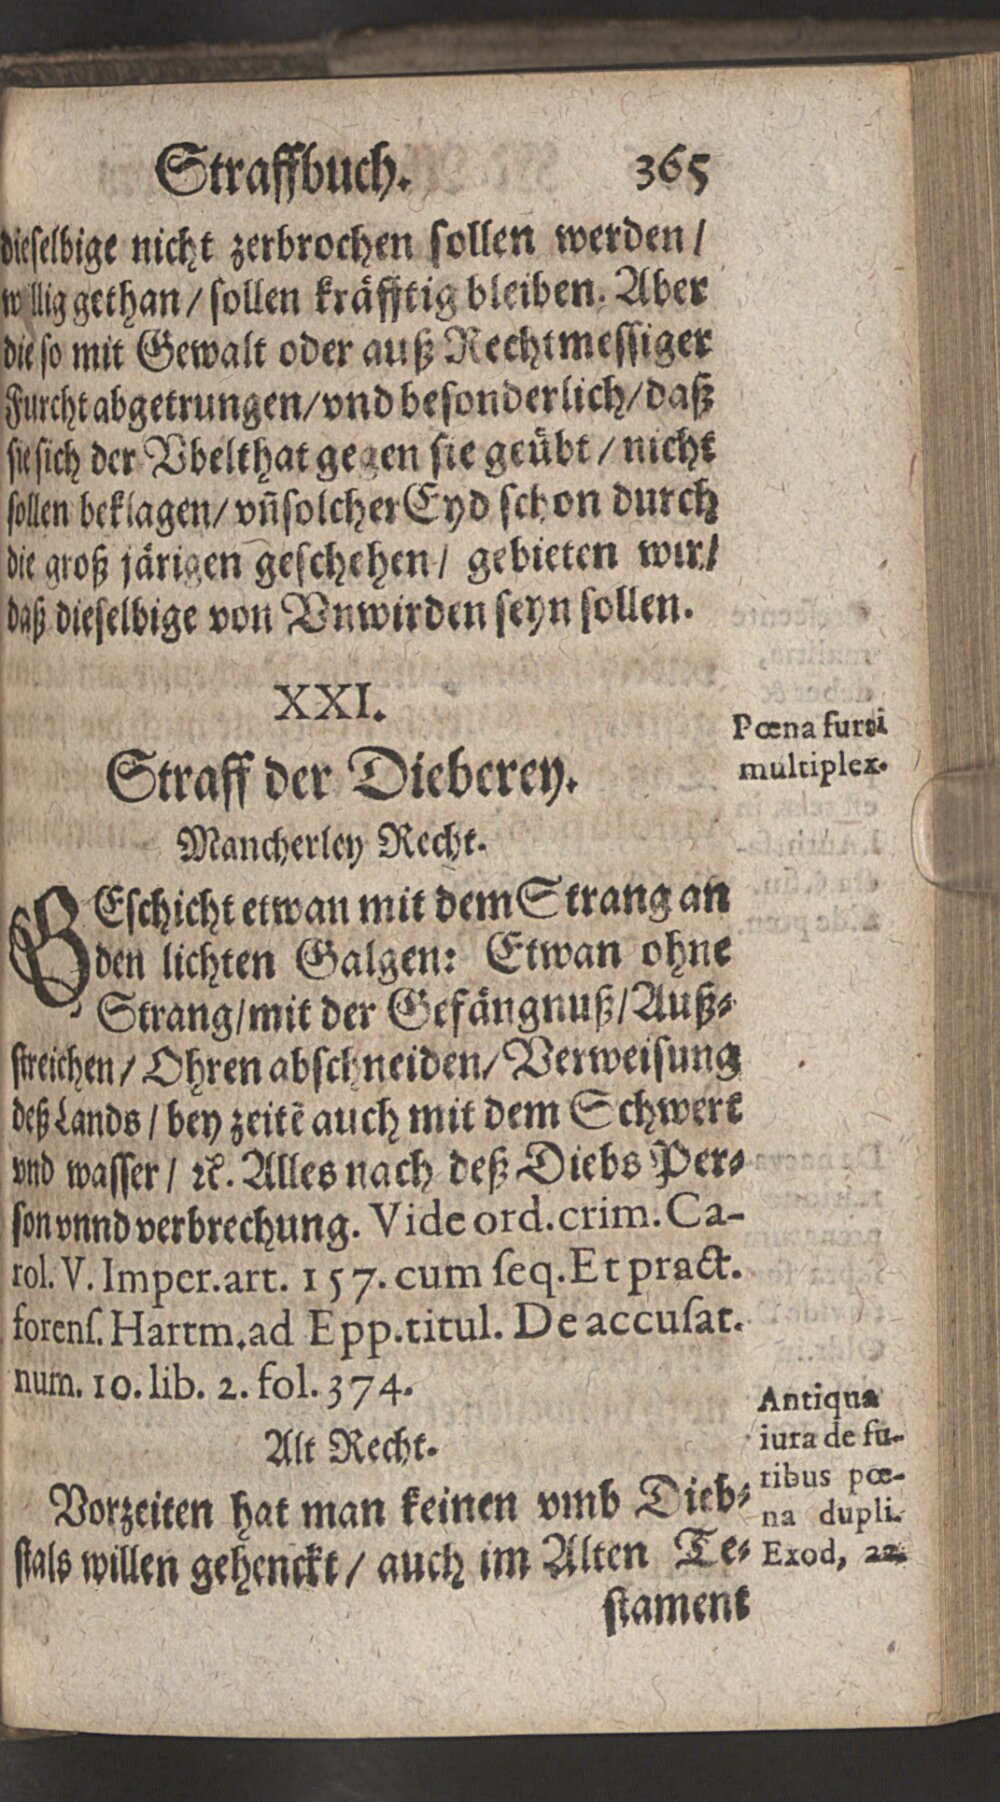 Straffbuch. 365
dieselbige nicht zerbrochen sollen werden /
willig gethan / sollen kräfftig bleiben. Aber
die so mit Gewalt oder auß Rechtmessiger
Furcht abgetrungen / vnd besonderlich / daß
sie sich der Vbelthat gegen sie geübt / nicht
sollen beklagen / vñ solcher Eyd schon durch
die groß järigen geschehen / gebieten wir /
daß dieselbige von Vnwirden seyn sollen.
XXI.
Straff der Dieberey.
Pœna furti
multiplex.
Mancherley Recht.
GEschicht etwan mit dem Strang an
den lichten Galgen: Etwan ohne
Strang / mit der Gefängnuß / Auß⸗
streichen / Ohren abschneiden / Verweisung
deß Lands / bey zeitẽ auch mit dem Schwert
vnd wasser / ꝛc. Alles nach deß Diebs Per⸗
son vnnd verbrechung. Vide ord. crim. Ca-
rol. V. Imper. art. 157. cum ſeq. Et pract.
forenſ. Hartm. ad Epp. titul. De accuſat.
num. 10. lib. 2. fol. 374.
Alt Recht.
Vorzeiten hat man keinen vmb Dieb⸗
stals willen gehenckt / auch im Alten Te⸗
stament
Antiqua
iura de fu-
ribus pœ-
na dupli.
Exod, 22.